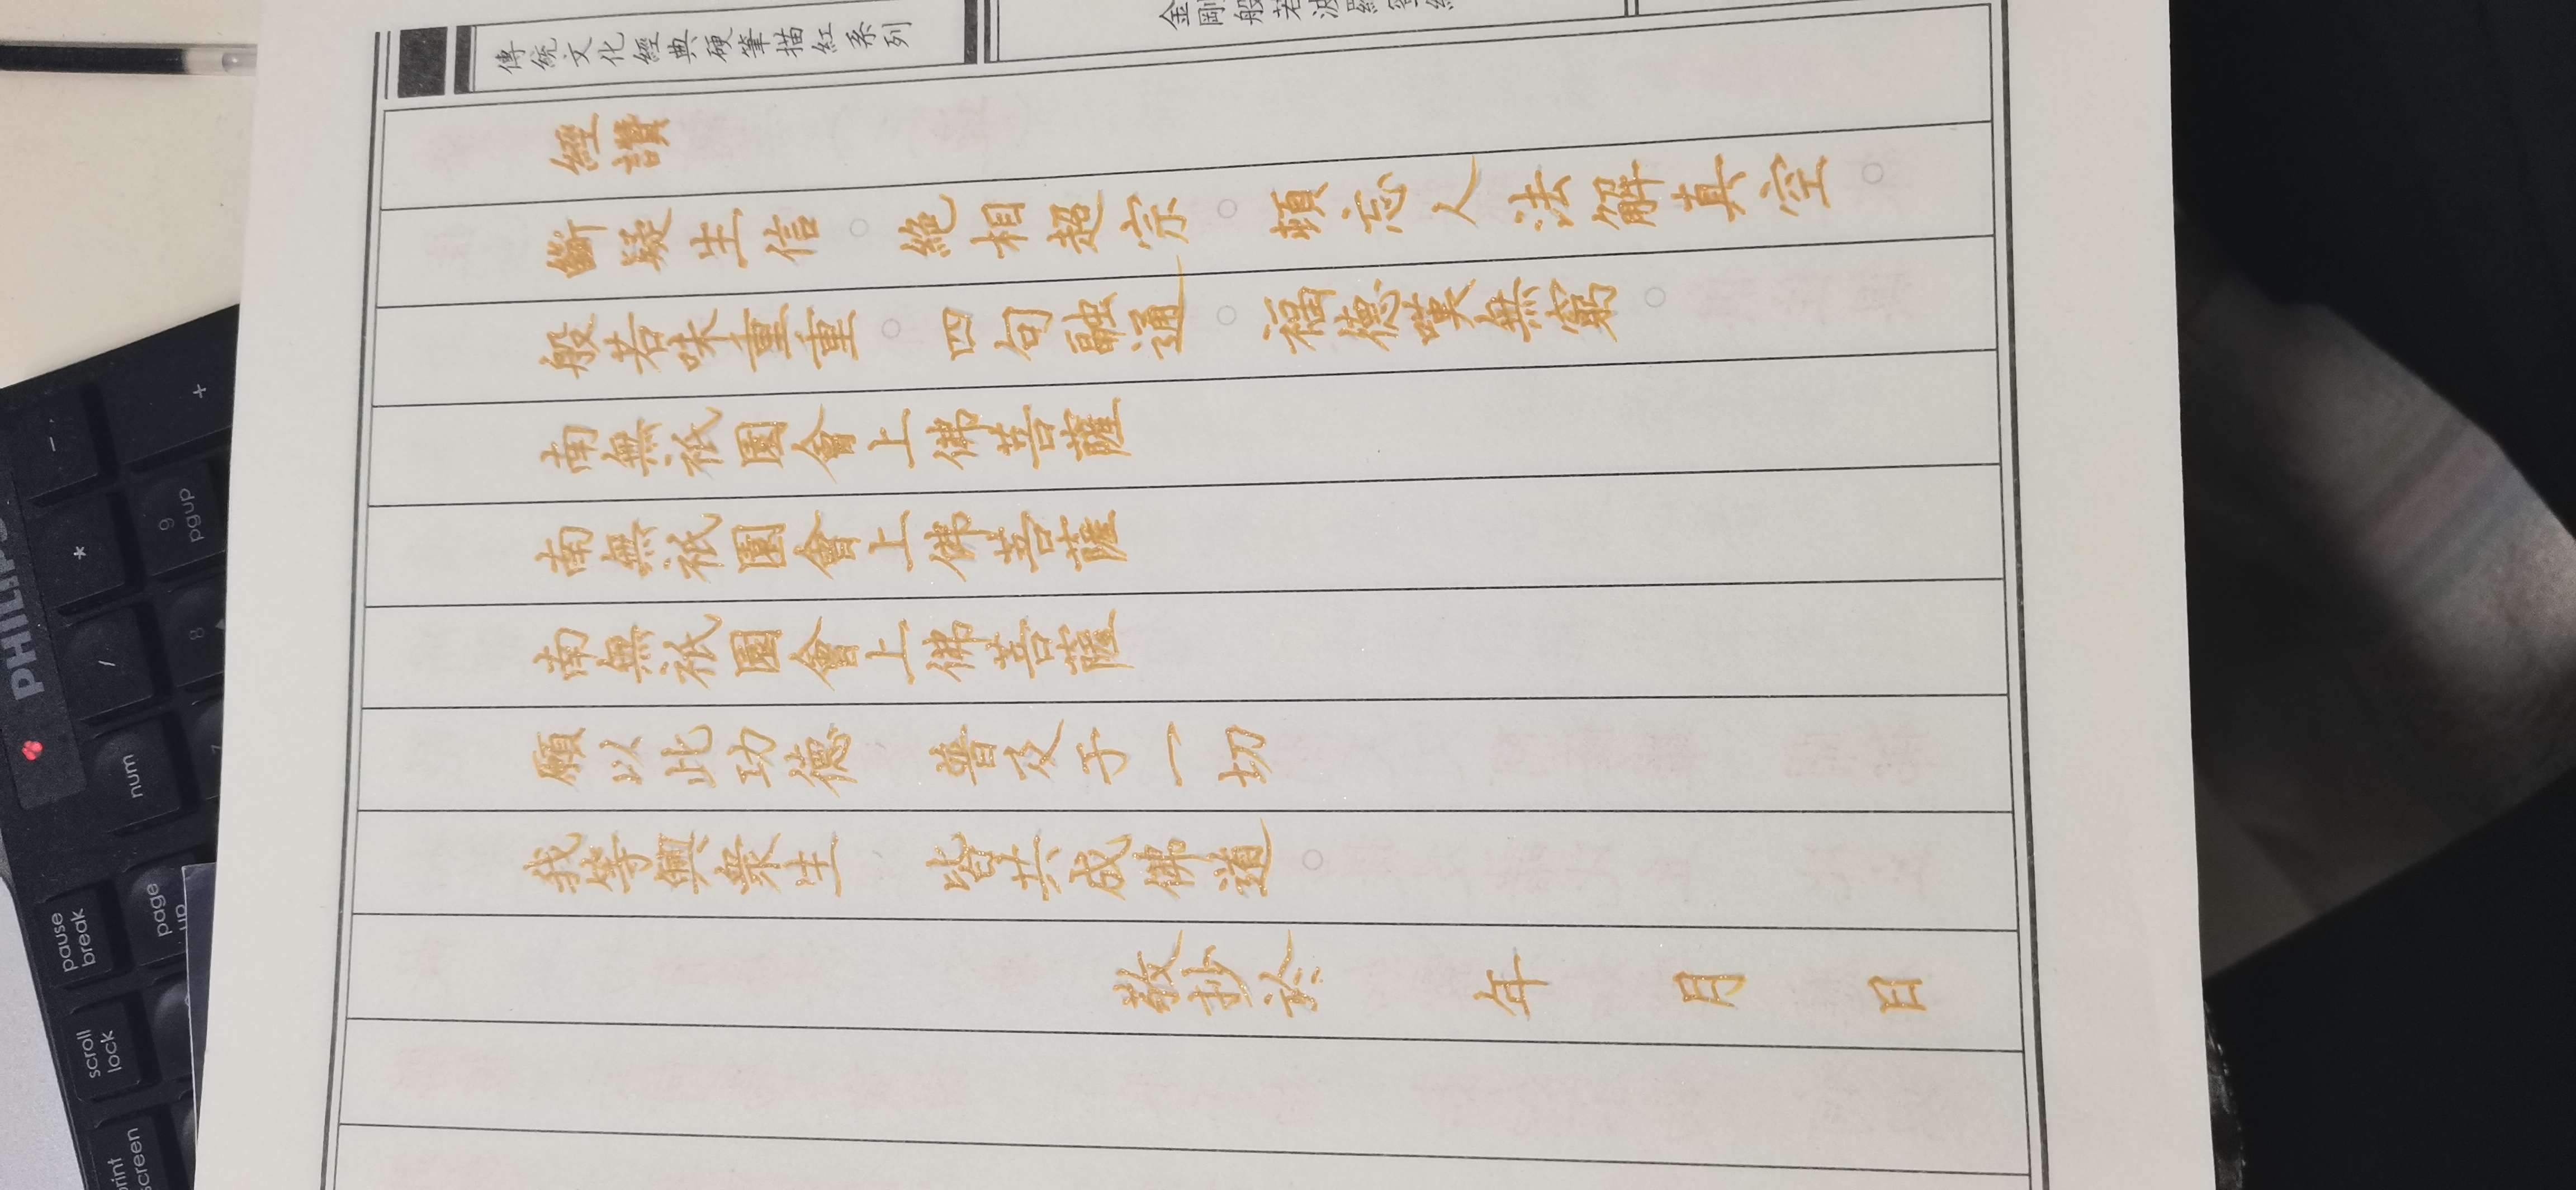 傳統文化經典硬筆描紅系列
金剛般若波羅蜜經
經讚
斷疑生信。絕相超宗。頓忘人法解真空。
般若味重重。四句融通。福德嘆無窮。
南無祇園會上佛菩薩
南無祇園會上佛菩薩
南無祇園會上佛菩薩
願以此功德 普及于一切
我等與衆生 皆共成佛道。
敬抄於 年 月 日
PHILIPS
-
+
*
9
pgup
/
8
7
num
pause
break
page
up
scroll
lock
print
screen